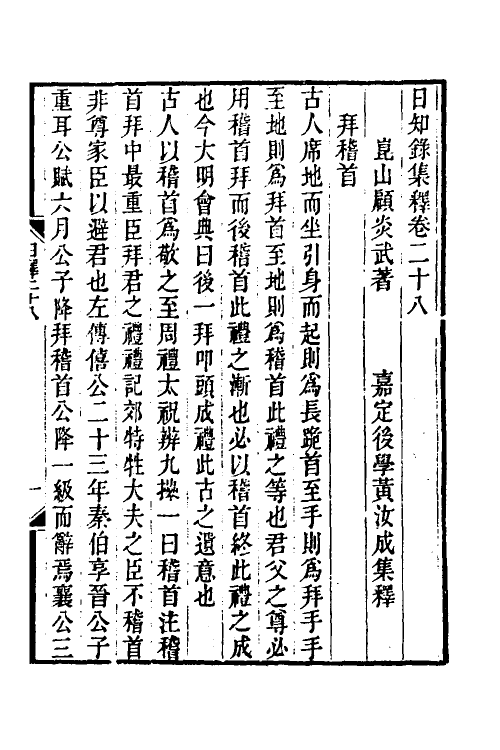 日知錄集釋卷二十八
崑山顧炎武著　嘉定後學黃汝成集釋
拜稽首
古人席地而坐引身而起則爲長跪首至手則爲拜手手
至地則爲拜首至地則爲稽首此禮之等也君父之尊必
用稽首拜而後稽首此禮之漸也必以稽首終此禮之成
也今大明會典曰後一拜叩頭成禮此古之遺意也
古人以稽首爲敬之至周禮太祝辨九𢷎一曰稽首注稽
首拜中最重臣拜君之禮禮記郊特牲大夫之臣不稽首
非尊家臣以避君也左傳僖公二十三年秦伯享晉公子
重耳公賦六月公子降拜稽首公降一級而辭焉襄公三
日釋二十八
一